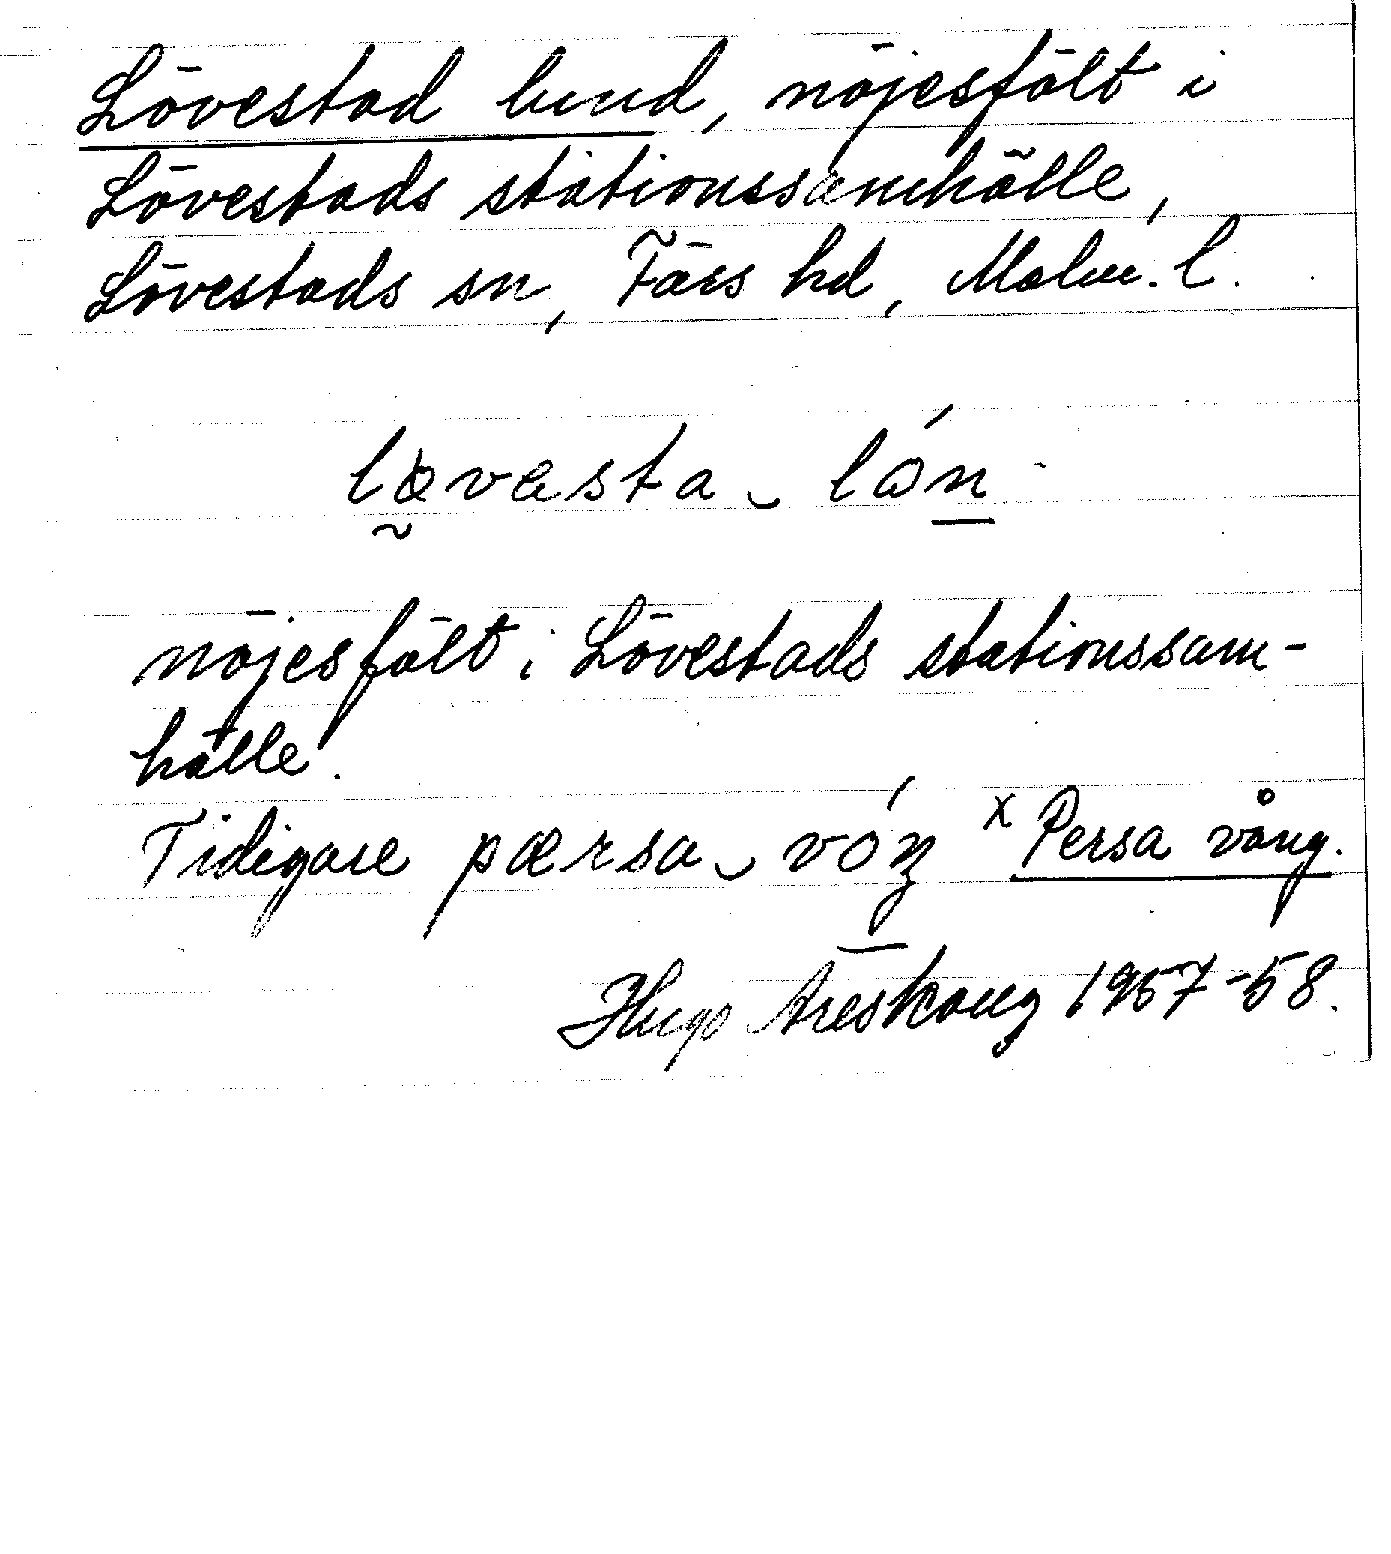 Lövestad lund, nöjesfält i
Lövestads stationssamhälle,
Lövestads sn, Färs hd, Malm. l.
løvəsta ‿ lón
nöjesfält i Lövestads stationssam-
hälle.
Tidigare pærsa ‿ vóŋ x Persa vång.
Hugo Areskoug 1957-58.